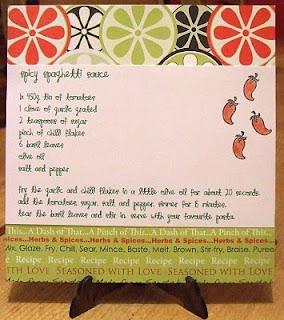 spicy spaghetti sauce
1x 450g tin of tomatoes
1 clove of garlic grated
2 teaspoons of sugar
pinch of chilli flakes
6 basil leaves
olive oil
salt and pepper
fry the garlic and chilli flakes in a little olive oil for about 20 seconds.
add the tomatoes, sugar, salt and pepper. simmer for 8 minutes.
tear the basil leaves and stir in. serve with your favourite pasta.
This...A Dash of That...A Pinch of This...A Dash of That...A Pinch of
Spices...Herbs & Spices...Herbs & Spices...Herbs & Spices...
Mix, Glaze, Fry, Chill, Sear, Mince, Baste, Melt, Brown, Stir-fry, Braise, Puree
Recipe Recipe Recipe Recipe Recipe Recipe
with Love Seasoned with Love Seasoned with